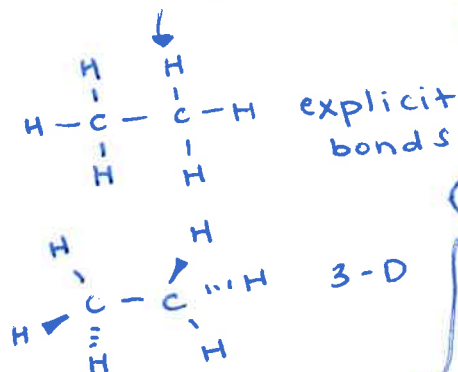 H H
H - C - C - H explicit
H H bonds
H H
C - C H 3-D
H H H